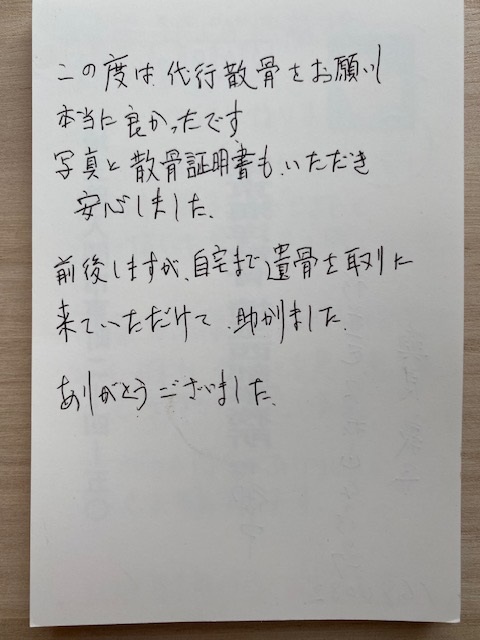 この度は代行散骨をお願いし
本当に良かったです
写真と散骨証明書も、いただき
安心しました、
前後しますが、自宅まで遺骨を取りに
来ていただけて、助かりました、
ありがとうございました、